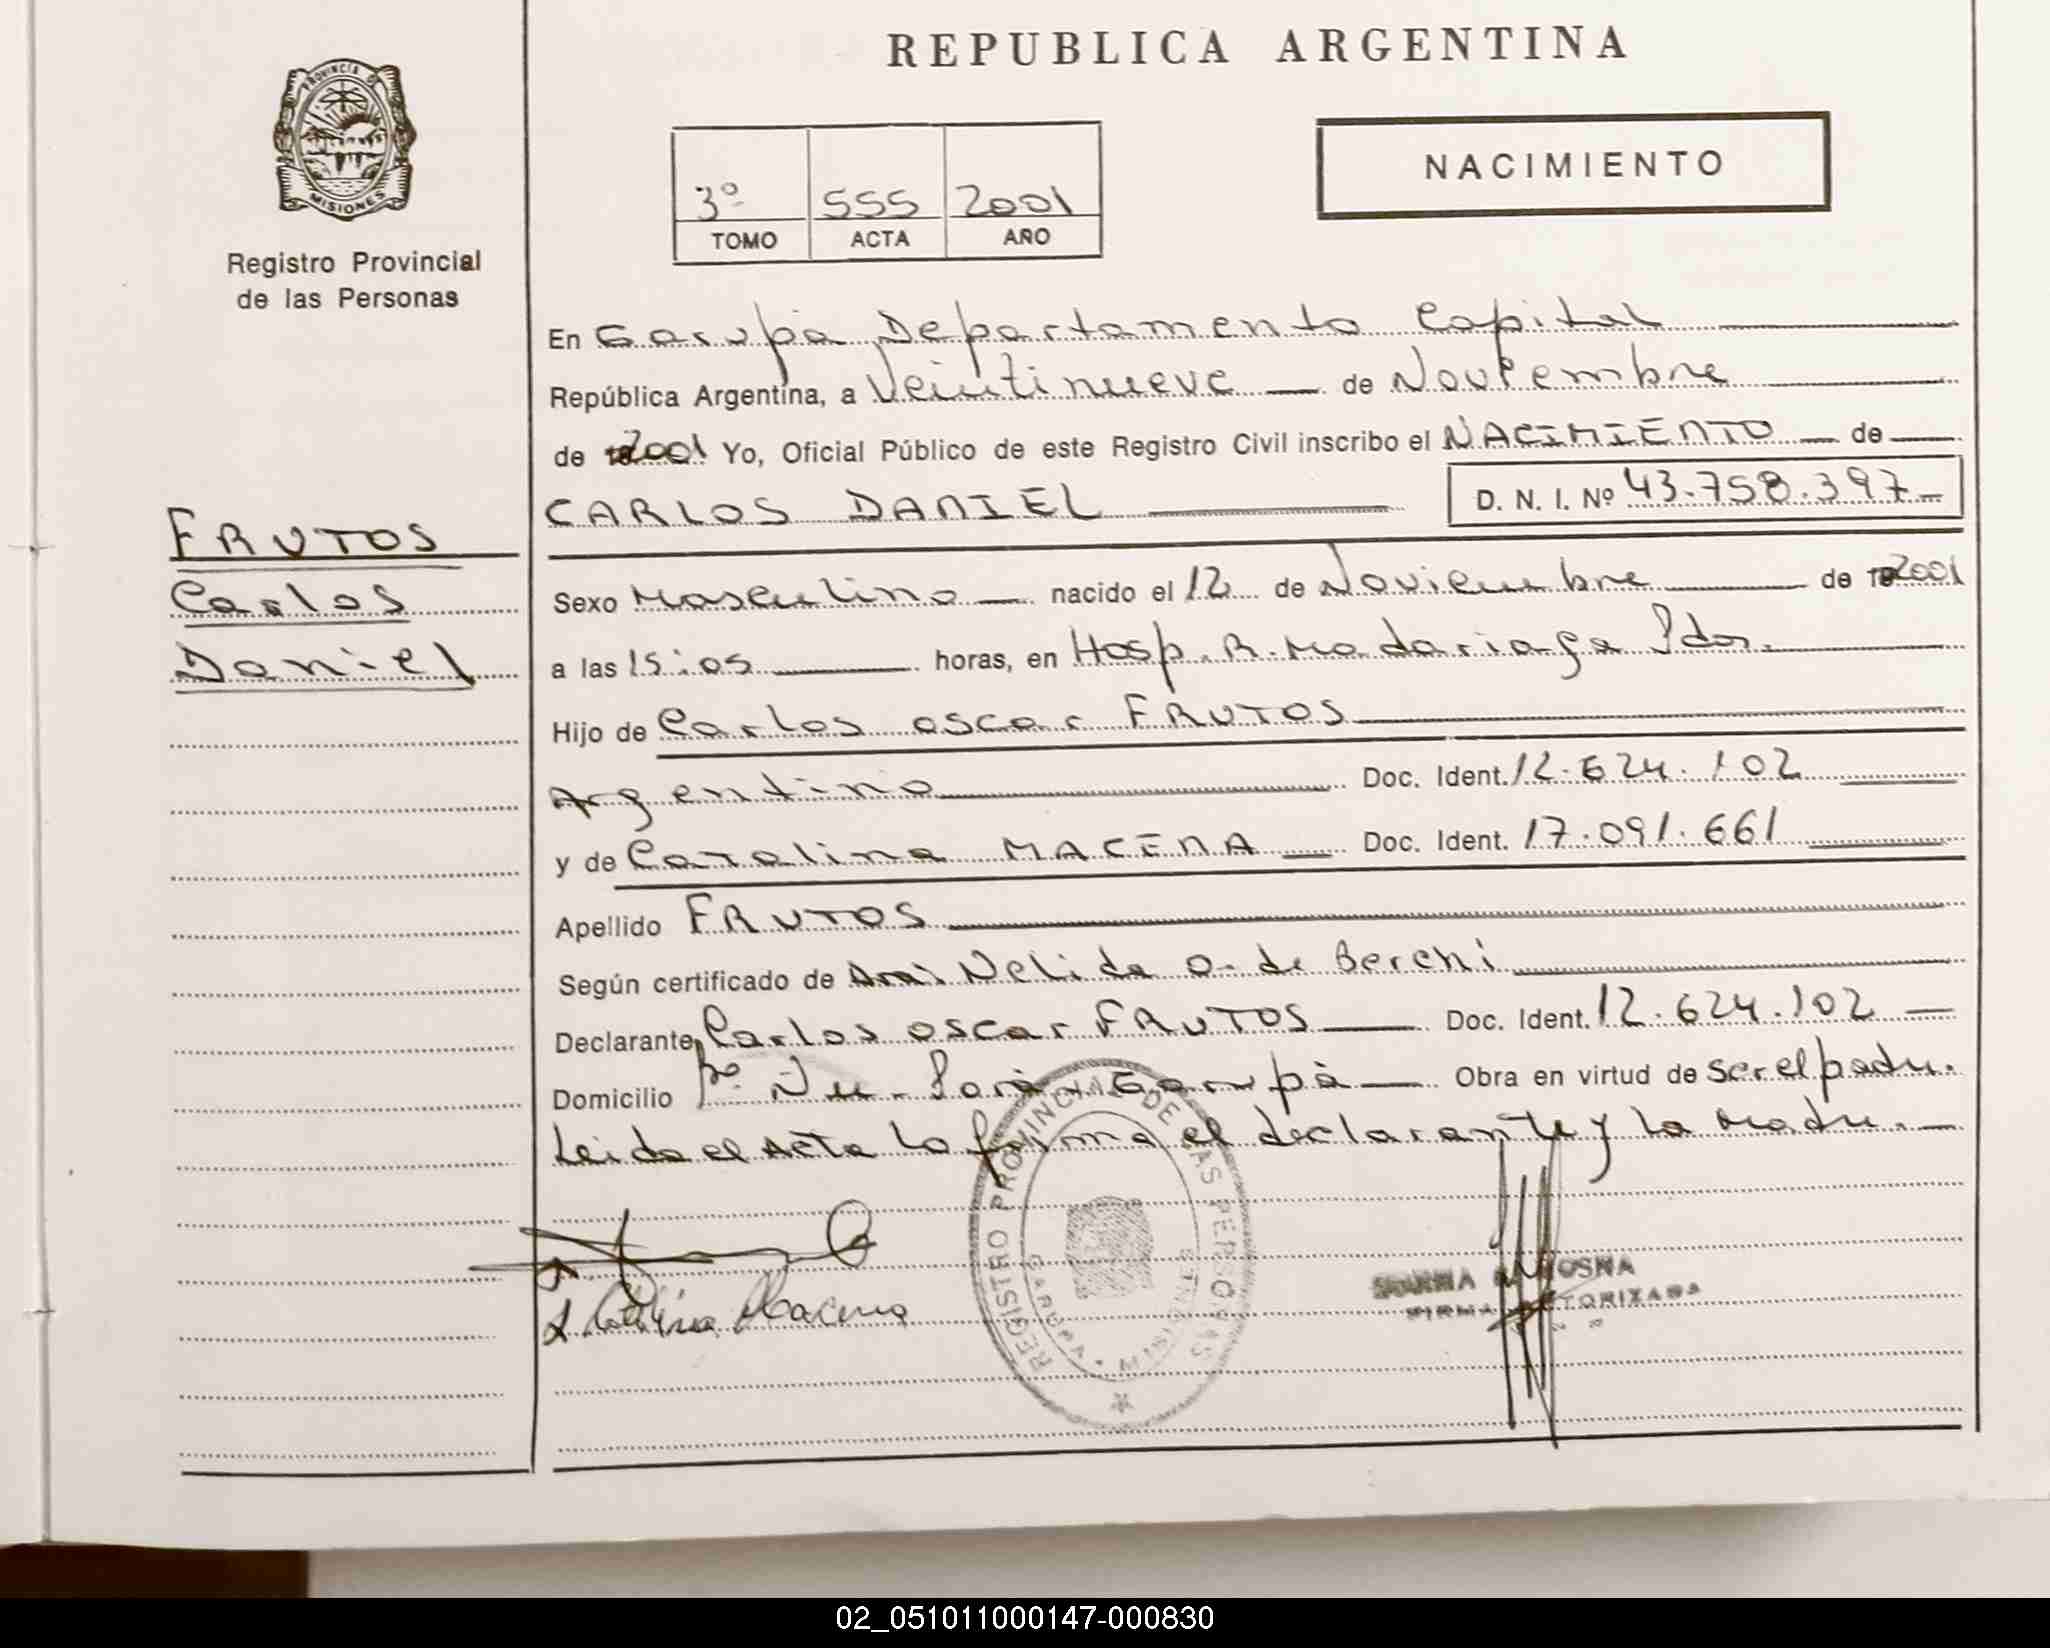 REPUBLICA ARGENTINA
PROVINCIA D
MISIONES
Registro Provincial
de las Personas
3º 555 2001
TOMO ACTA AÑO
NACIMIENTO
En Garupá Departamento Capital
República Argentina, a Veintinueve de Noviembre
de 2001 Yo, Oficial Público de este Registro Civil inscribo el NACIMIENTO de
CARLOS DANIEL D. N. I. Nº 43.758.397
FRUTOS
Carlos
Daniel
Sexo Masculino nacido el 12 de Noviembre de 2001
a las 15:05 horas, en Hosp. R. Madariaga Pdas.
Hijo de Carlos Oscar FRUTOS
Argentino Doc. Ident. 12.624.102
y de Catalina MACENA Doc. Ident. 17.091.661
Apellido FRUTOS
Según certificado de Nelida O. de Berchi
Declarante Carlos Oscar FRUTOS Doc. Ident. 12.624.102
Domicilio Bº Ñu Porá - Garupá Obra en virtud de ser el padre.
Leida el Acta la firma el declarante y la Madre.
REGISTRO PROVINCIAL DE LAS PERSONAS
GARUPA • MISIONES
Catalina Macena
FIRMA AUTORIZADA
02_051011000147-000830